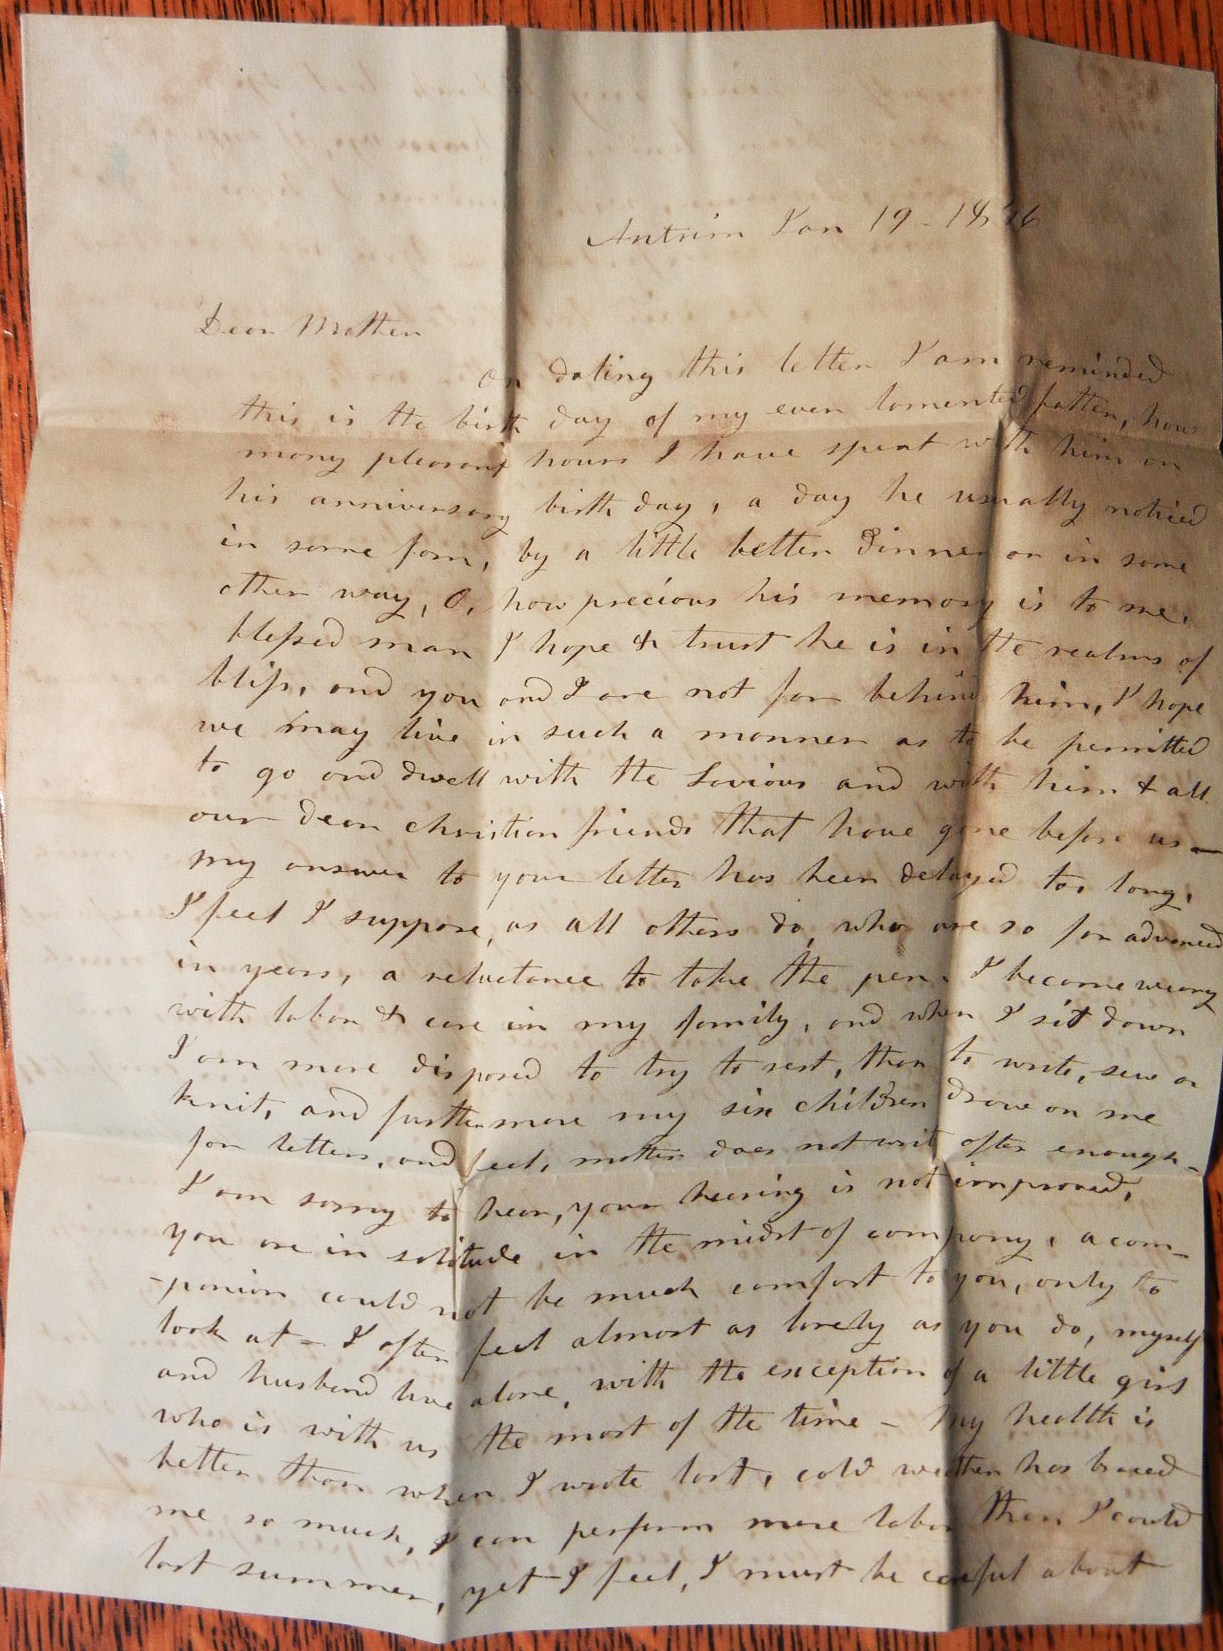 Antrim Jan 19 - 18
Dear Mother
On dating this letter I am reminded
this is the birth day of my ever lamented father, how
many pleasant hours I have spent with him on
his anniversary birth day, a day he usually noticed
in some form, by a little better dinner or in some
other way, O, how precious his memory is to me,
blessed man I hope & trust he is in the realms of
bliss, and you and I are not far behind him, I hope
we may live in such a manner as to be permitted
to go and dwell with the Saviour and with him & all
our dear christian friends that have gone before us —
my answer to your letter has been delayed too long,
I feel I suppose, as all others do, who are so far advanced
in years, a reluctance to take the pen. I become weary
with labor & care in my family, and when I sit down
I am more disposed to try to rest, than to write, sew or
knit, and further more my six children draw on me
for letters, and feel, mother does not writ often enough -
I am sorry to hear, your hearing is not improved,
you are in solitude in the midst of company, a com-
-panion could not be much comfort to you, only to
look at - I often feel almost as lonely as you do, myself
and husband live alone, with the exception of a little girl
who is with us the most of the time - My health is
better than when I wrote last, cold weather has braced
me so much, I can perform more labor than I could
last summer, yet I feel, I must be careful about